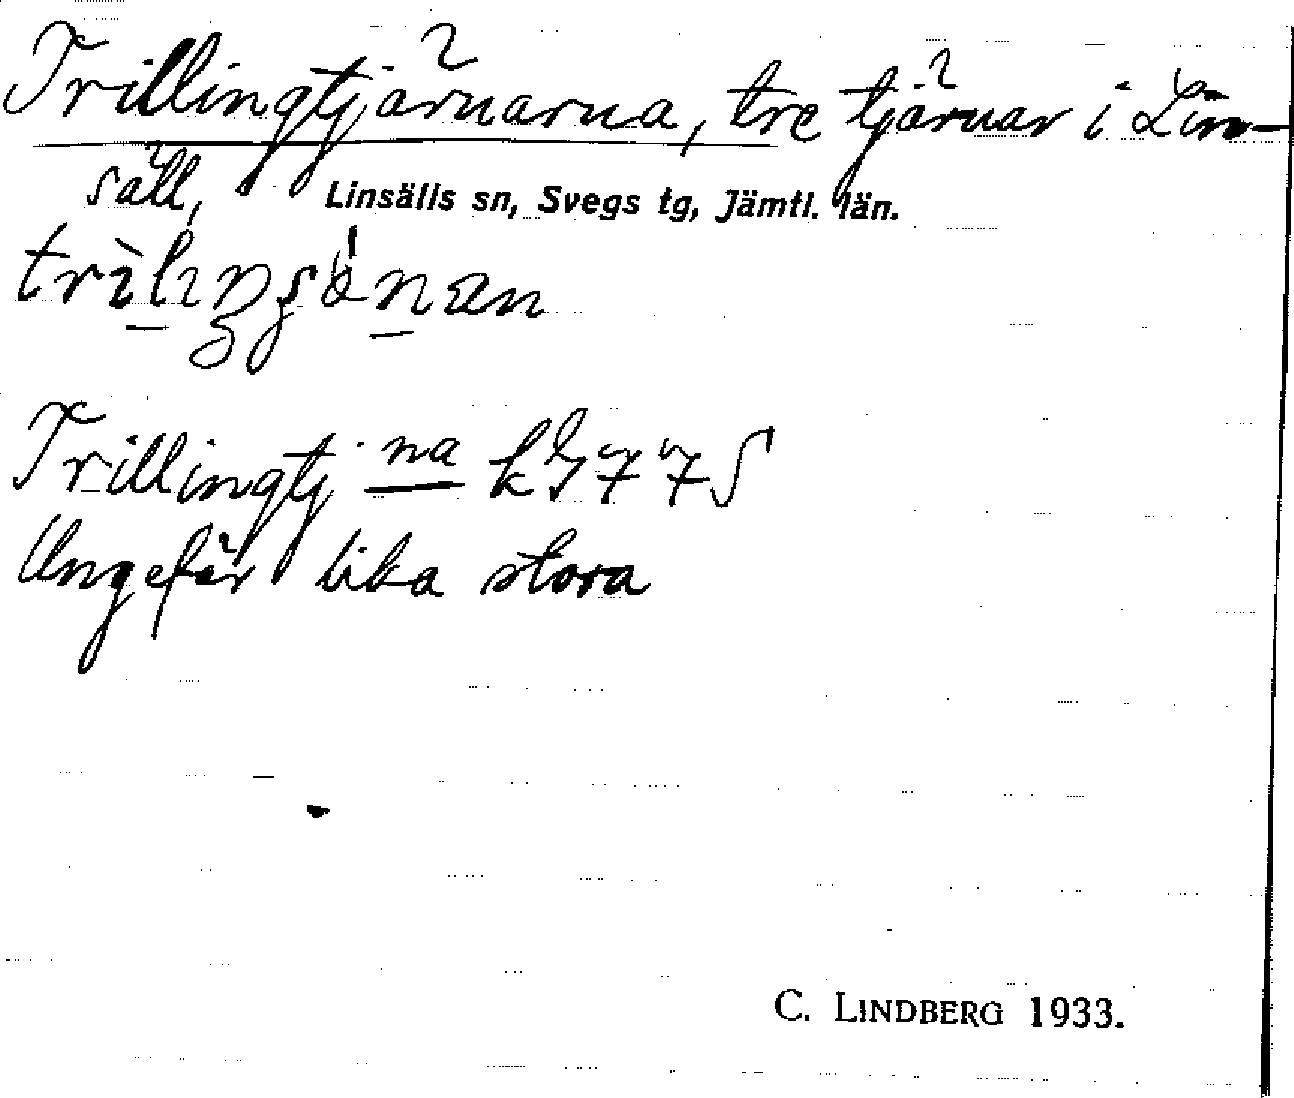 Trillingtjärnarna, tre tjärnar i Lin-
säll,
Linsälls sn, Svegs tg, Jämtl. län.
Trillingtj. na
Ungefär lika stora
C. LINDBERG 1933.